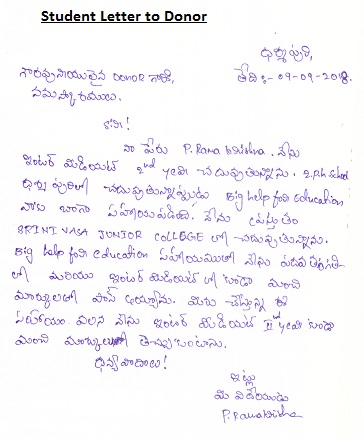 Student Letter to Donor
ధర్మపురి,
తేది:- 09-09-2018.
గౌరవనీయులైన Donor గారికి,
నమస్కారములు.
సార్!
నా పేరు P. Rama krishna. నేను
ఇంటర్ మీడియట్ 2nd year చదువుతున్నాను. Z.P.H School
ధర్మపురిలో చదువుతున్నప్పుడు Big help for education
నాకు బాగా సహాయపడింది. నేను ప్రస్తుతం
SRINIVASA JUNIOR COLLEGE లో చదువుతున్నాను.
Big help for education సహాయముతో నేను పదవ తరగతి
లో మరియు ఇంటర్ మీడియట్ లో కూడా మంచి
మార్కులతో పాస్ అయ్యాను. మీరు చేస్తున్న ఈ
సహాయం వలన నేను ఇంటర్ మీడియట్ II year కూడా
మంచి మార్కులతో తెచ్చుకుంటాను.
ధన్యవాదాలు!
ఇట్లు
మీ విధేయుడు
P. Rama krishna